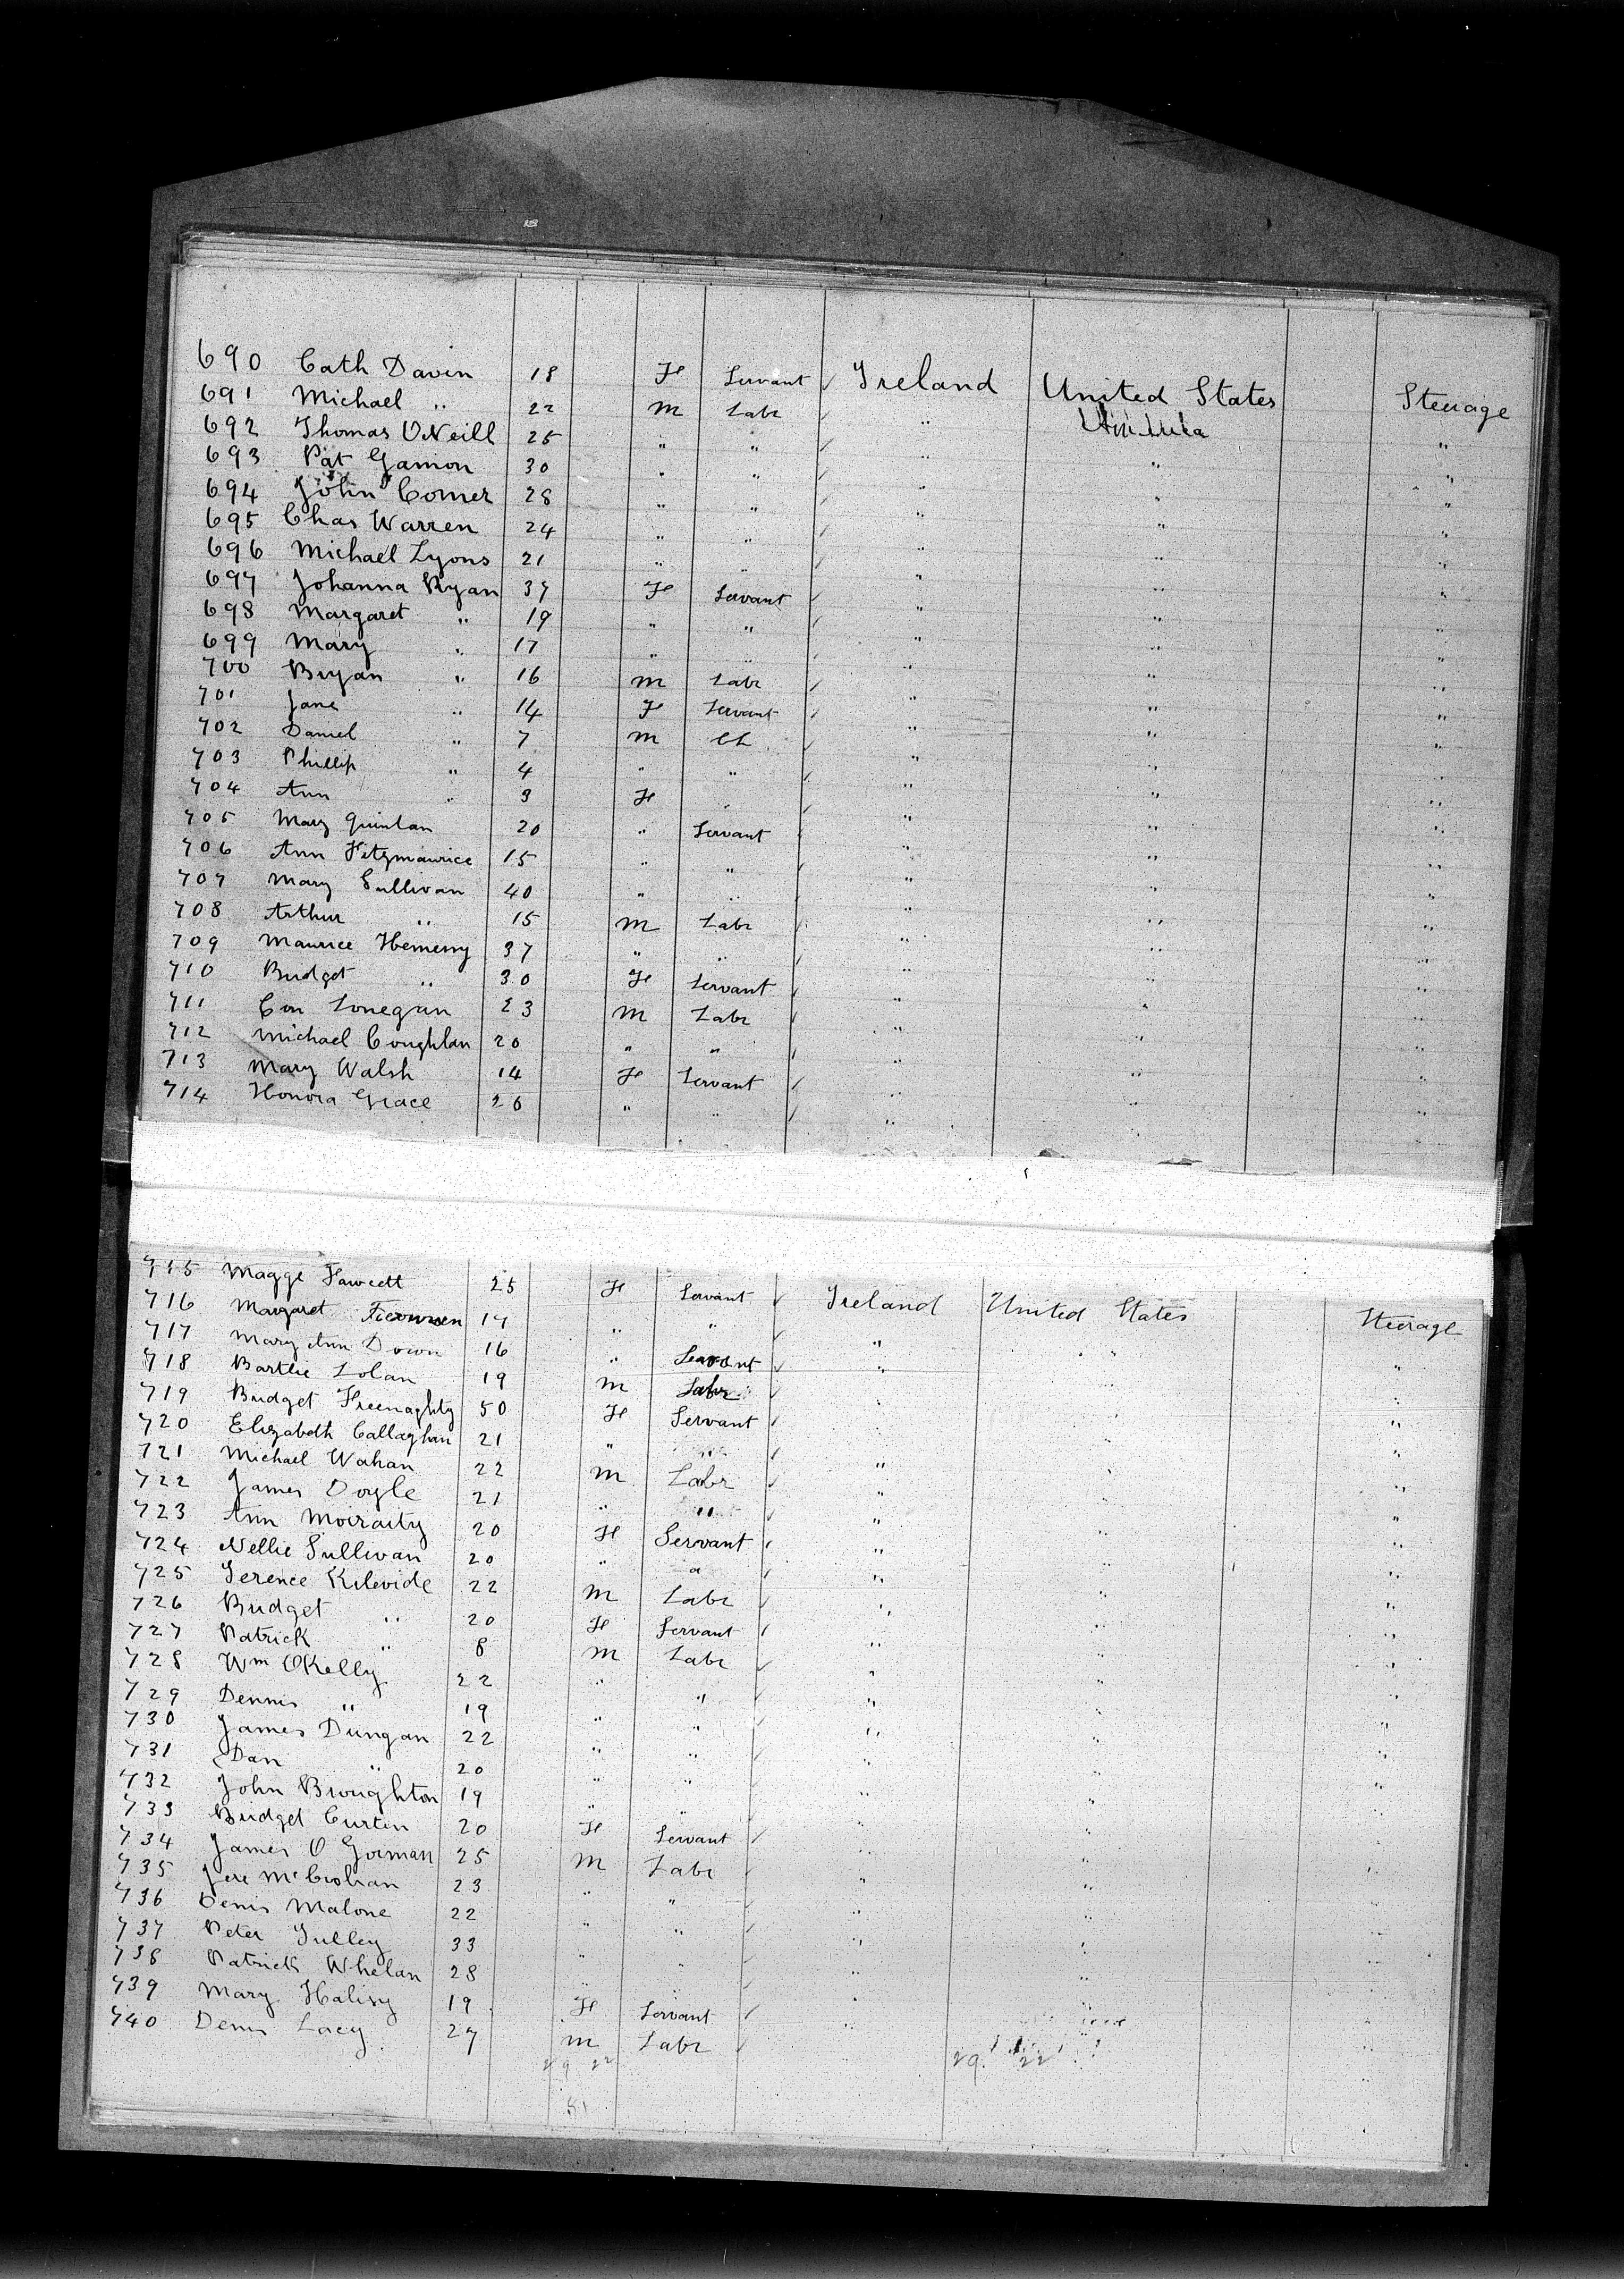 690 Cath Davin 18 F Servant ✓ Ireland United States Steerage
691 Michael " 22 M Labr ✓ "
692 Thomas O'Neill 25 " " ✓ " " "
693 Pat Gamon 30 " " ✓ " " "
694 John Comer 28 " " ✓ " " "
695 Chas Warren 24 " " ✓ " " "
696 Michael Lyons 21 " " ✓ " " "
697 Johanna Ryan 37 F Servant ✓ " " "
698 Margaret " 19 " " ✓ " " "
699 Mary " 17 " " ✓ " " "
700 Bryan " 16 M Labr ✓ " " "
701 Jane " 14 F Servant ✓ " " "
702 Daniel " 7 M Ch ✓ " " "
703 Phillip " 4 " " ✓ " " "
704 Ann " 3 F " ✓ " " "
705 Mary Quinlan 20 " Servant ✓ " " "
706 Ann Fitzmaurice 15 " " ✓ " " "
707 Mary Sullivan 40 " " ✓ " " "
708 Arthur " 15 M Labr ✓ " " "
709 Maurice Hemessy 37 " " ✓ " " "
710 Bridget " 30 F Servant ✓ " " "
711 Con Lonegan 23 M Labr ✓ " " "
712 Michael Coughlan 20 " " ✓ " " "
713 Mary Walsh 14 F Servant ✓ " " "
714 Honora Grace 26 " " ✓ " " "
715 Magge Fawcett 25 F Servant ✓ Ireland United States Steerage
716 Margaret 17 " " ✓ " " "
717 Mary Ann Down 16 " Servant ✓ " " "
718 Bartlie Lolan 19 M Labr ✓ " " "
719 Bridget Freenaghty 50 F Servant ✓ " " "
720 Elizabeth Callaghan 21 " " ✓ " " "
721 Michael Wahan 22 M Labr ✓ " " "
722 James Doyle 21 " " ✓ " " "
723 Ann Moiraity 20 F Servant ✓ " " "
724 Nellie Sullivan 20 " " ✓ " " "
725 Terence Kilevide 22 M Labr ✓ " " "
726 Bridget " 20 F Servant ✓ " " "
727 Patrick " 8 M Labr ✓ " " "
728 Wm O'Kelly 22 " " ✓ " " "
729 Dennis " 19 " " ✓ " " "
730 James Dungan 22 " " ✓ " " "
731 Dan " 20 " " ✓ " " "
732 John Broughton 19 " " ✓ " " "
733 Bridget Curtin 20 F Servant ✓ " " "
734 James O Gorman 25 M Labr ✓ " " "
735 Jere McCrohan 23 " " ✓ " " "
736 Denis Malone 22 " " ✓ " " "
737 Peter Tulley 33 " " ✓ " " "
738 Patrick Whelan 28 " " ✓ " " "
739 Mary Halisy 19 F Servant ✓ " " "
740 Denis Lacy 27 M Labr ✓
29 22 29 22
51